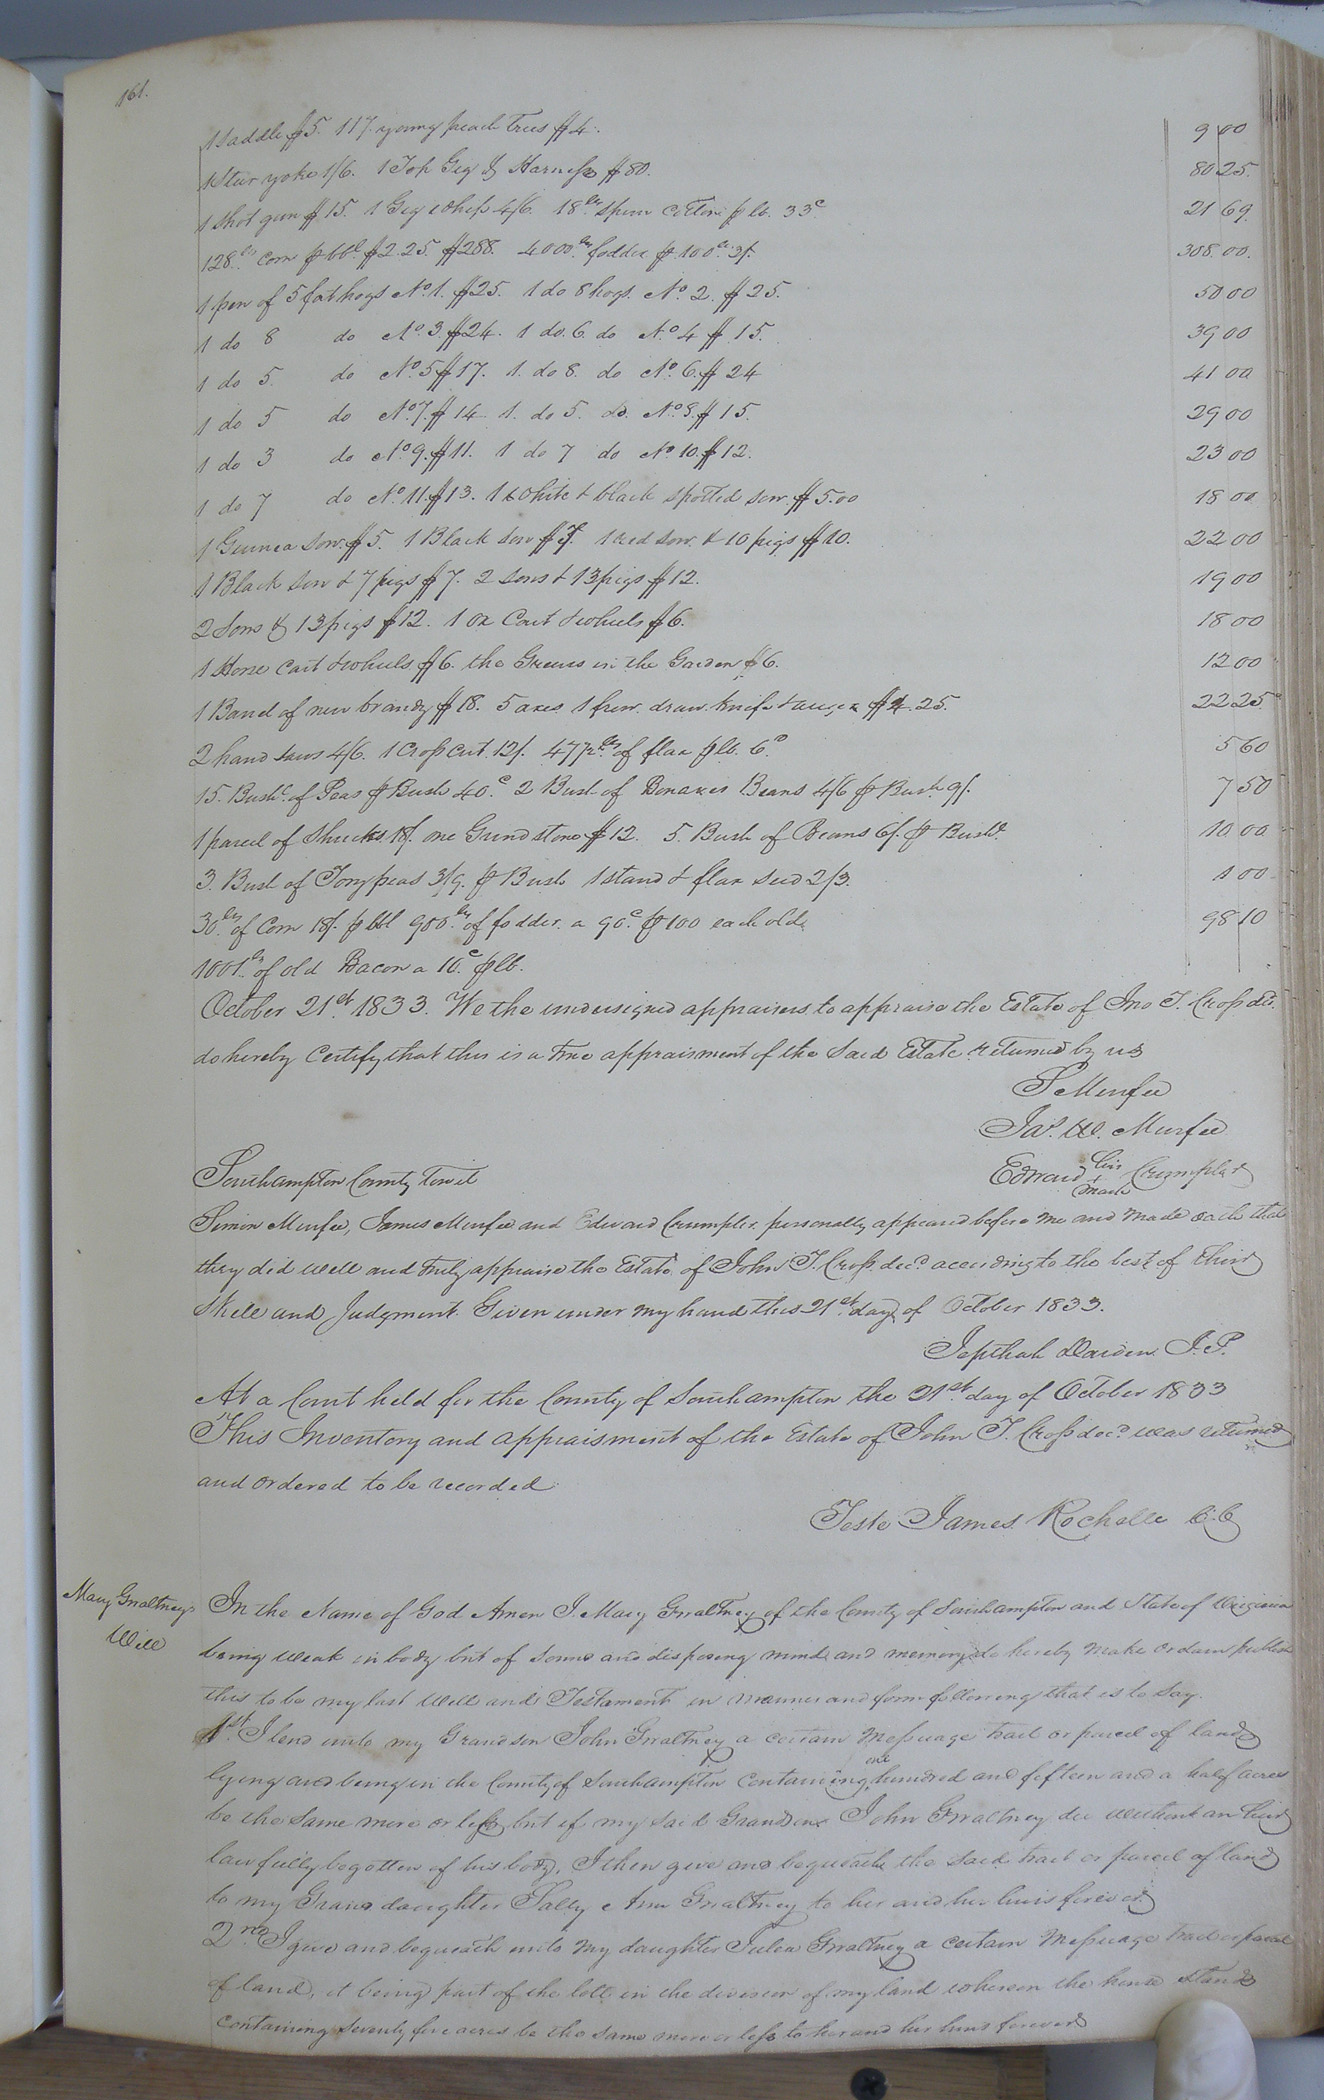 161.
1 Saddle $5. 117 young peach Trees $4. 9 00
1 Steer yoke 1/6. 1 Top Gig & Harness $80. 80 25
1 Shot gun $15. 1 Gig whip 4/6. 18 lbs spun cotton p lb. 33c 21 69
128 lbs corn p bbl $2.25. $288. 4000 lbs fodder p 100 lbs 3/. 308.00.
1 pen of 5 fat hogs No. 1. $25. 1 do 8 hogs. No. 2. $25. 50 00
1 do 8 do No. 3 $24. 1 do. 6. do No. 4 $15. 39 00
1 do 5. do No. 5 $17. 1. do 8. do No. 6. $24 41 00
1 do 5 do No. 7. $14 1. do 5. do. No. 8. $15. 29 00
1 do 3 do No. 9. $11. 1 do 7 do No. 10. $12. 23 00
1 do 7 do No. 11. $13. 1 White & black spotted sow. $5.00 18 00
1 Guinea Sow. $5. 1 Black Sow $7. 1 red sow. & 10 pigs $10. 22 00
1 Black Sow & 7 pigs $7. 2 Sows & 13 pigs $12. 19 00
2 Sows & 13 pigs $12. 1 ox Cart & wheels $6. 18 00
1 Horse Cart & wheels $6. the Greens in the Garden $6. 12 00
1 Barrel of new brandy $18. 5 axes 1 frow. draw. knife & auger $4.25. 22 25
2 hand saws 4/6. 1 Cross cut 12/. 47 1/2 lbs of flax p lb. 6c 5 60
15. Bush. of Peas p Bush 40.c 2 Bush of Beans 4/6 p Bush 9/. 7 50
1 parcel of Shucks. 18/. one Grind stone $12. 5. Bush of Beans 6/. p Bush. 10 00
3. Bush of Tory peas 3/9. p Bush 1 stand & flax seed 2/3. 1 00
30 of Corn 18/. p bbl 900 lbs of fodder. a 90c. p 100 each old 98 10
1001 lbs of old Bacon a 10c. p lb.
October 21st. 1833. We the undersigned appraisers to appraise the Estate of Jno T. Cross dec.
do hereby Certify that this is a true appraisment of the Said Estate returned by us
S Murfee
Jas. W. Murfee
Edward his mark Crumpler
Southampton County Towit
Simon Murfee, James Murfee and Edward Crumpler, personally appeared before me and made oath that
they did well and truly appraise the Estate of John T. Cross decd according to the best of their
Skill and Judgment. Given under my hand this 21st day of October 1833.
Jepthah Darden J.P.
At a Court held for the County of Southampton the 21st day of October 1833
This Inventory and appraisment of the Estate of John T. Cross decd was returned
and ordered to be recorded
Teste James Rochelle C.C
Mary Gwaltneys
Will
In the Name of God Amen I. Mary Gwaltney of the County of Southampton and State of Virginia
being weak in body but of sound and disposing mind and memory do hereby make ordain publish
this to be my last Will and Testament in manner and form following that is to say.
1st. I lend unto my Grandson John Gwaltney a certain Messuage tract or parcel of land
lying and being in the County of Southampton Containing one hundred and fifteen and a half acres
be the Same more or less, but if my said Grandson John Gwaltney die without an heir
lawfully begotten of his body, I then give and bequeath the said tract or parcel of land
to my Grand daughter Sally Ann Gwaltney to her and her heirs forever
2nd I give and bequeath unto my daughter Julia Gwaltney a certain Messuage tract or parcel
of land, it being part of the lott in the division of my land whereon the house stands
Containing Seventy five acres be the same more or less to her and her heirs forever